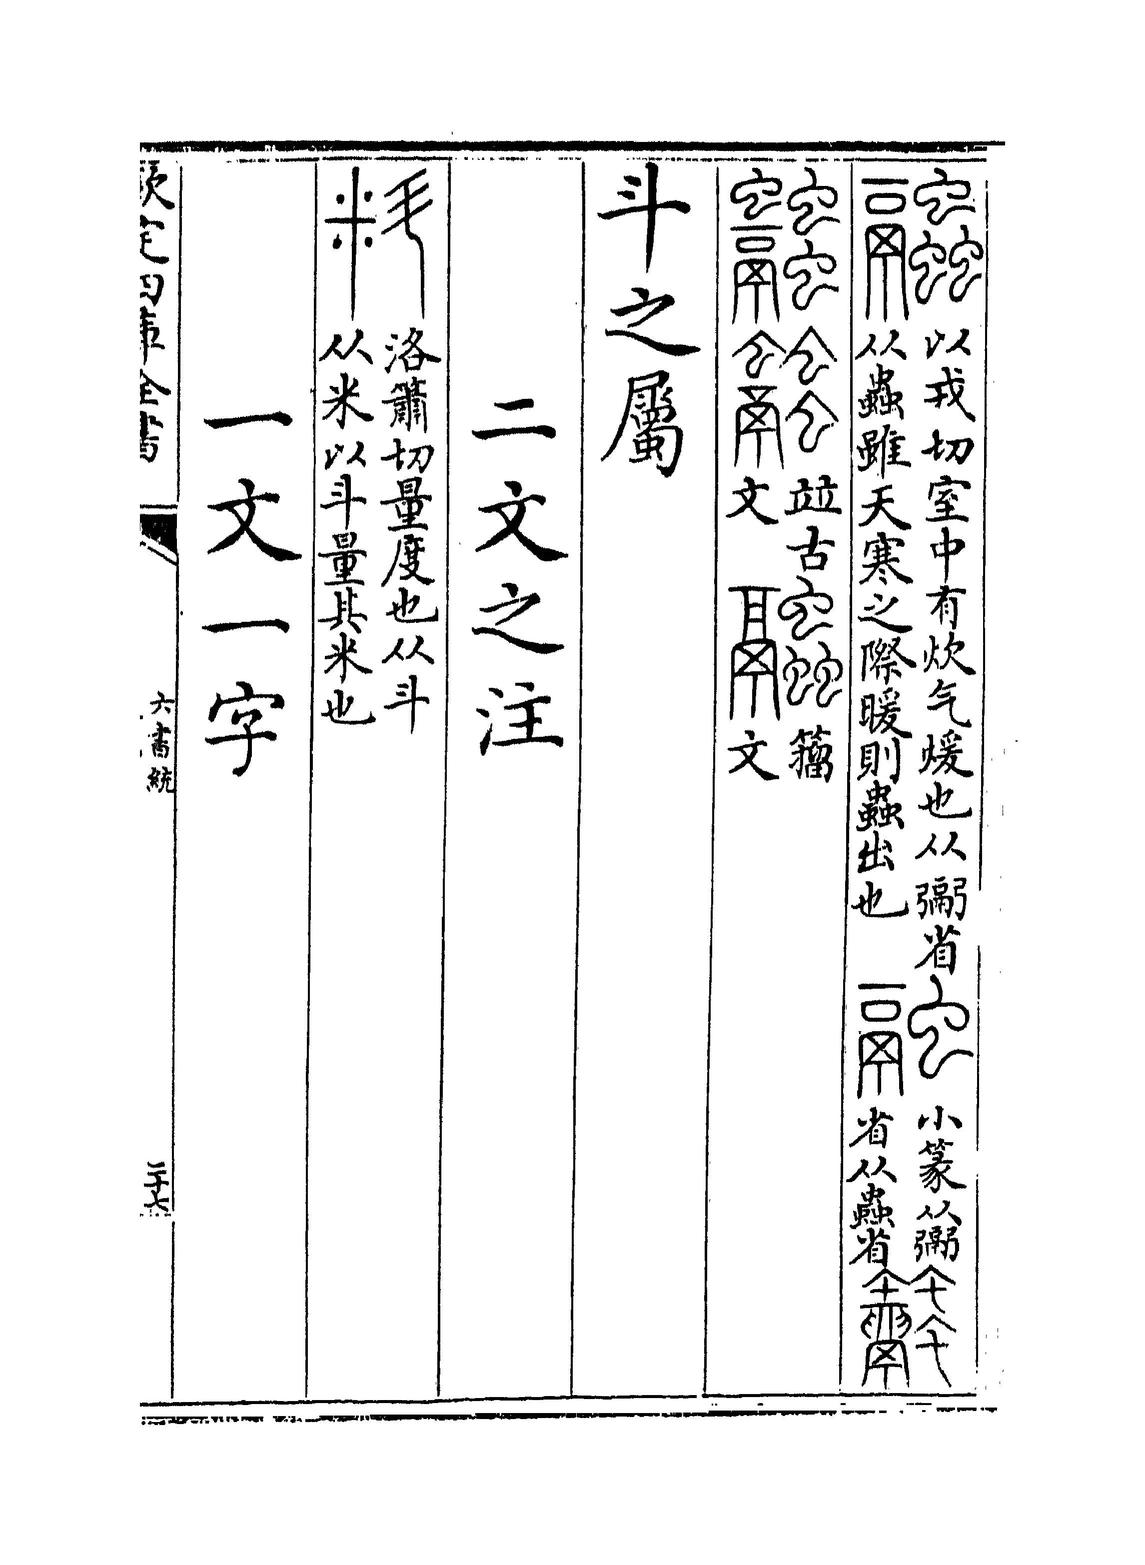 以戎切室中有炊气煖也从䰜省
从蟲雖天寒之際暖則蟲出也
小篆从䰜
省从蟲省
竝古
文
籒
文
斗之屬
二文之注
洛簫切量度也从斗
从米以斗量其米也
一文一字
欽定四庫全書
六書統
二十七